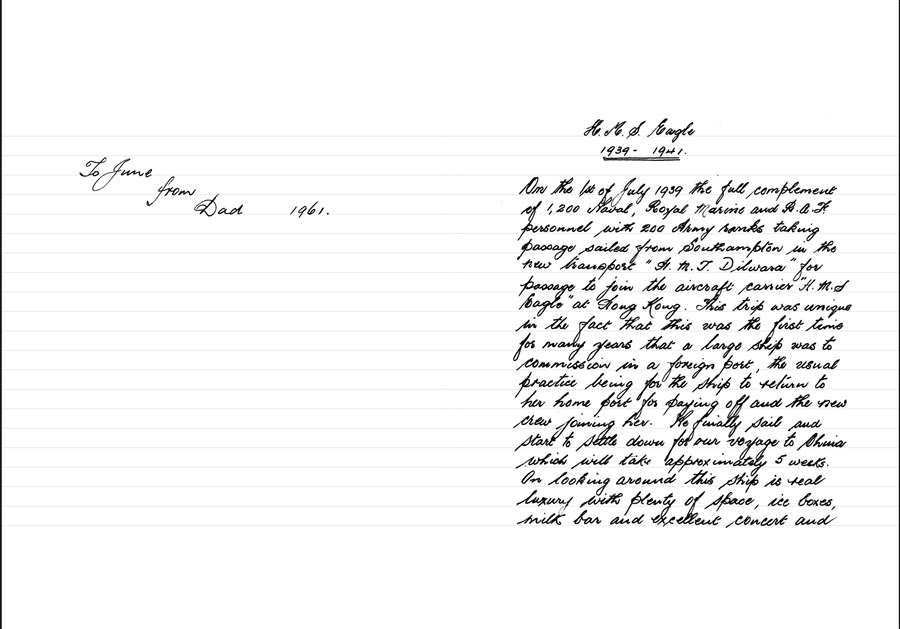 To June
from
Dad 1961.
H.M.S. Eagle
1939 - 1941.
On the 1st of July 1939 the full complement
of 1,200 Naval, Royal Marine and R.A.F
personnel with 200 Army ranks taking
passage sailed from Southampton in the
new transport "H.M.T. Dilwara" for
passage to join the aircraft carrier "H.M.S
Eagle" at Hong Kong. This trip was unique
in the fact that this was the first time
for many years that a large ship was to
commission in a foreign port, the usual
practice being for the ship to return to
her home port for paying off and the new
crew joining her. We finally sail and
start to settle down for our voyage to China
which will take approximately 5 weeks.
On looking around this ship is real
luxury with plenty of space, ice boxes,
milk bar and excellent concert and